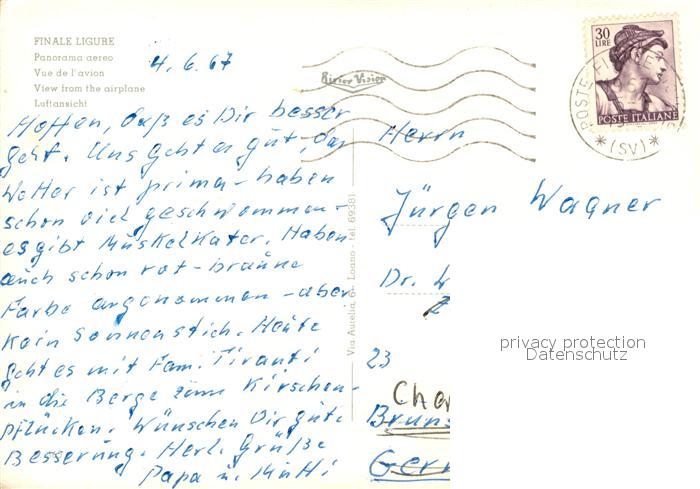 FINALE LIGURE
Panorama aereo
Vue de l'avion
View from the airplane
Luftansicht
4. 6. 67
30
LIRE
POSTE ITALIANE
(SV)
Hoffen, daß es Dir besser
geht. Uns geht es gut, das
Wetter ist prima - haben
schon viel geschwommen -
es gibt Muskelkater. Haben
auch schon rot-braune
Farbe angenommen - aber
kein Sonnenstich. Heute
geht es mit Fam. Tiranti
in die Berge zum Kirschen-
pflücken. Wünschen Dir gute
Besserung. Herl. Grüße
Papa u. Mutti
Via Aurelia, 6 - Loano - tel. 69381
Herrn
Jürgen Wagner
Dr.
23
privacy protection
Datenschutz